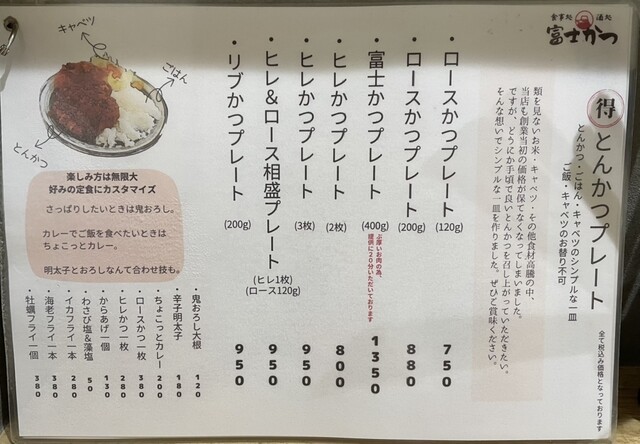 食事処 酒処
富士かつ
得 とんかつプレート
とんかつ・ごはん・キャベツのシンプルな一皿
ご飯・キャベツのお替り不可
全て税込み価格となっております
類を見ないお米・キャベツ・その他食材高騰の中、
当店も創業当初の価格が保てなくなってしまいました。
ですが、どうにか手頃で良いとんかつを召し上がっていただきたい。
そんな想いでシンプルな一皿を作りました。ぜひご賞味ください。
・ロースかつプレート (120g) 750
・ロースかつプレート (200g) 880
・富士かつプレート (400g) 1350
ぶ厚いお肉の為、
提供に20分いただいております
・ヒレかつプレート (2枚) 800
・ヒレかつプレート (3枚) 950
・ヒレ&ロース相盛プレート (ヒレ1枚)(ロース120g) 950
・リブかつプレート (200g) 950
キャベツ
ごはん
とんかつ
楽しみ方は無限大
好みの定食にカスタマイズ
さっぱりしたいときは鬼おろし。
カレーでご飯を食べたいときは
ちょこっとカレー。
明太子とおろしなんて合わせ技も。
・鬼おろし大根 120
・辛子明太子 180
・ちょこっとカレー 200
・ロースかつ一枚 380
・ヒレかつ一枚 280
・からあげ一個 130
・わさび塩&藻塩 50
・イカフライ一本 280
・海老フライ一本 380
・牡蠣フライ一個 380